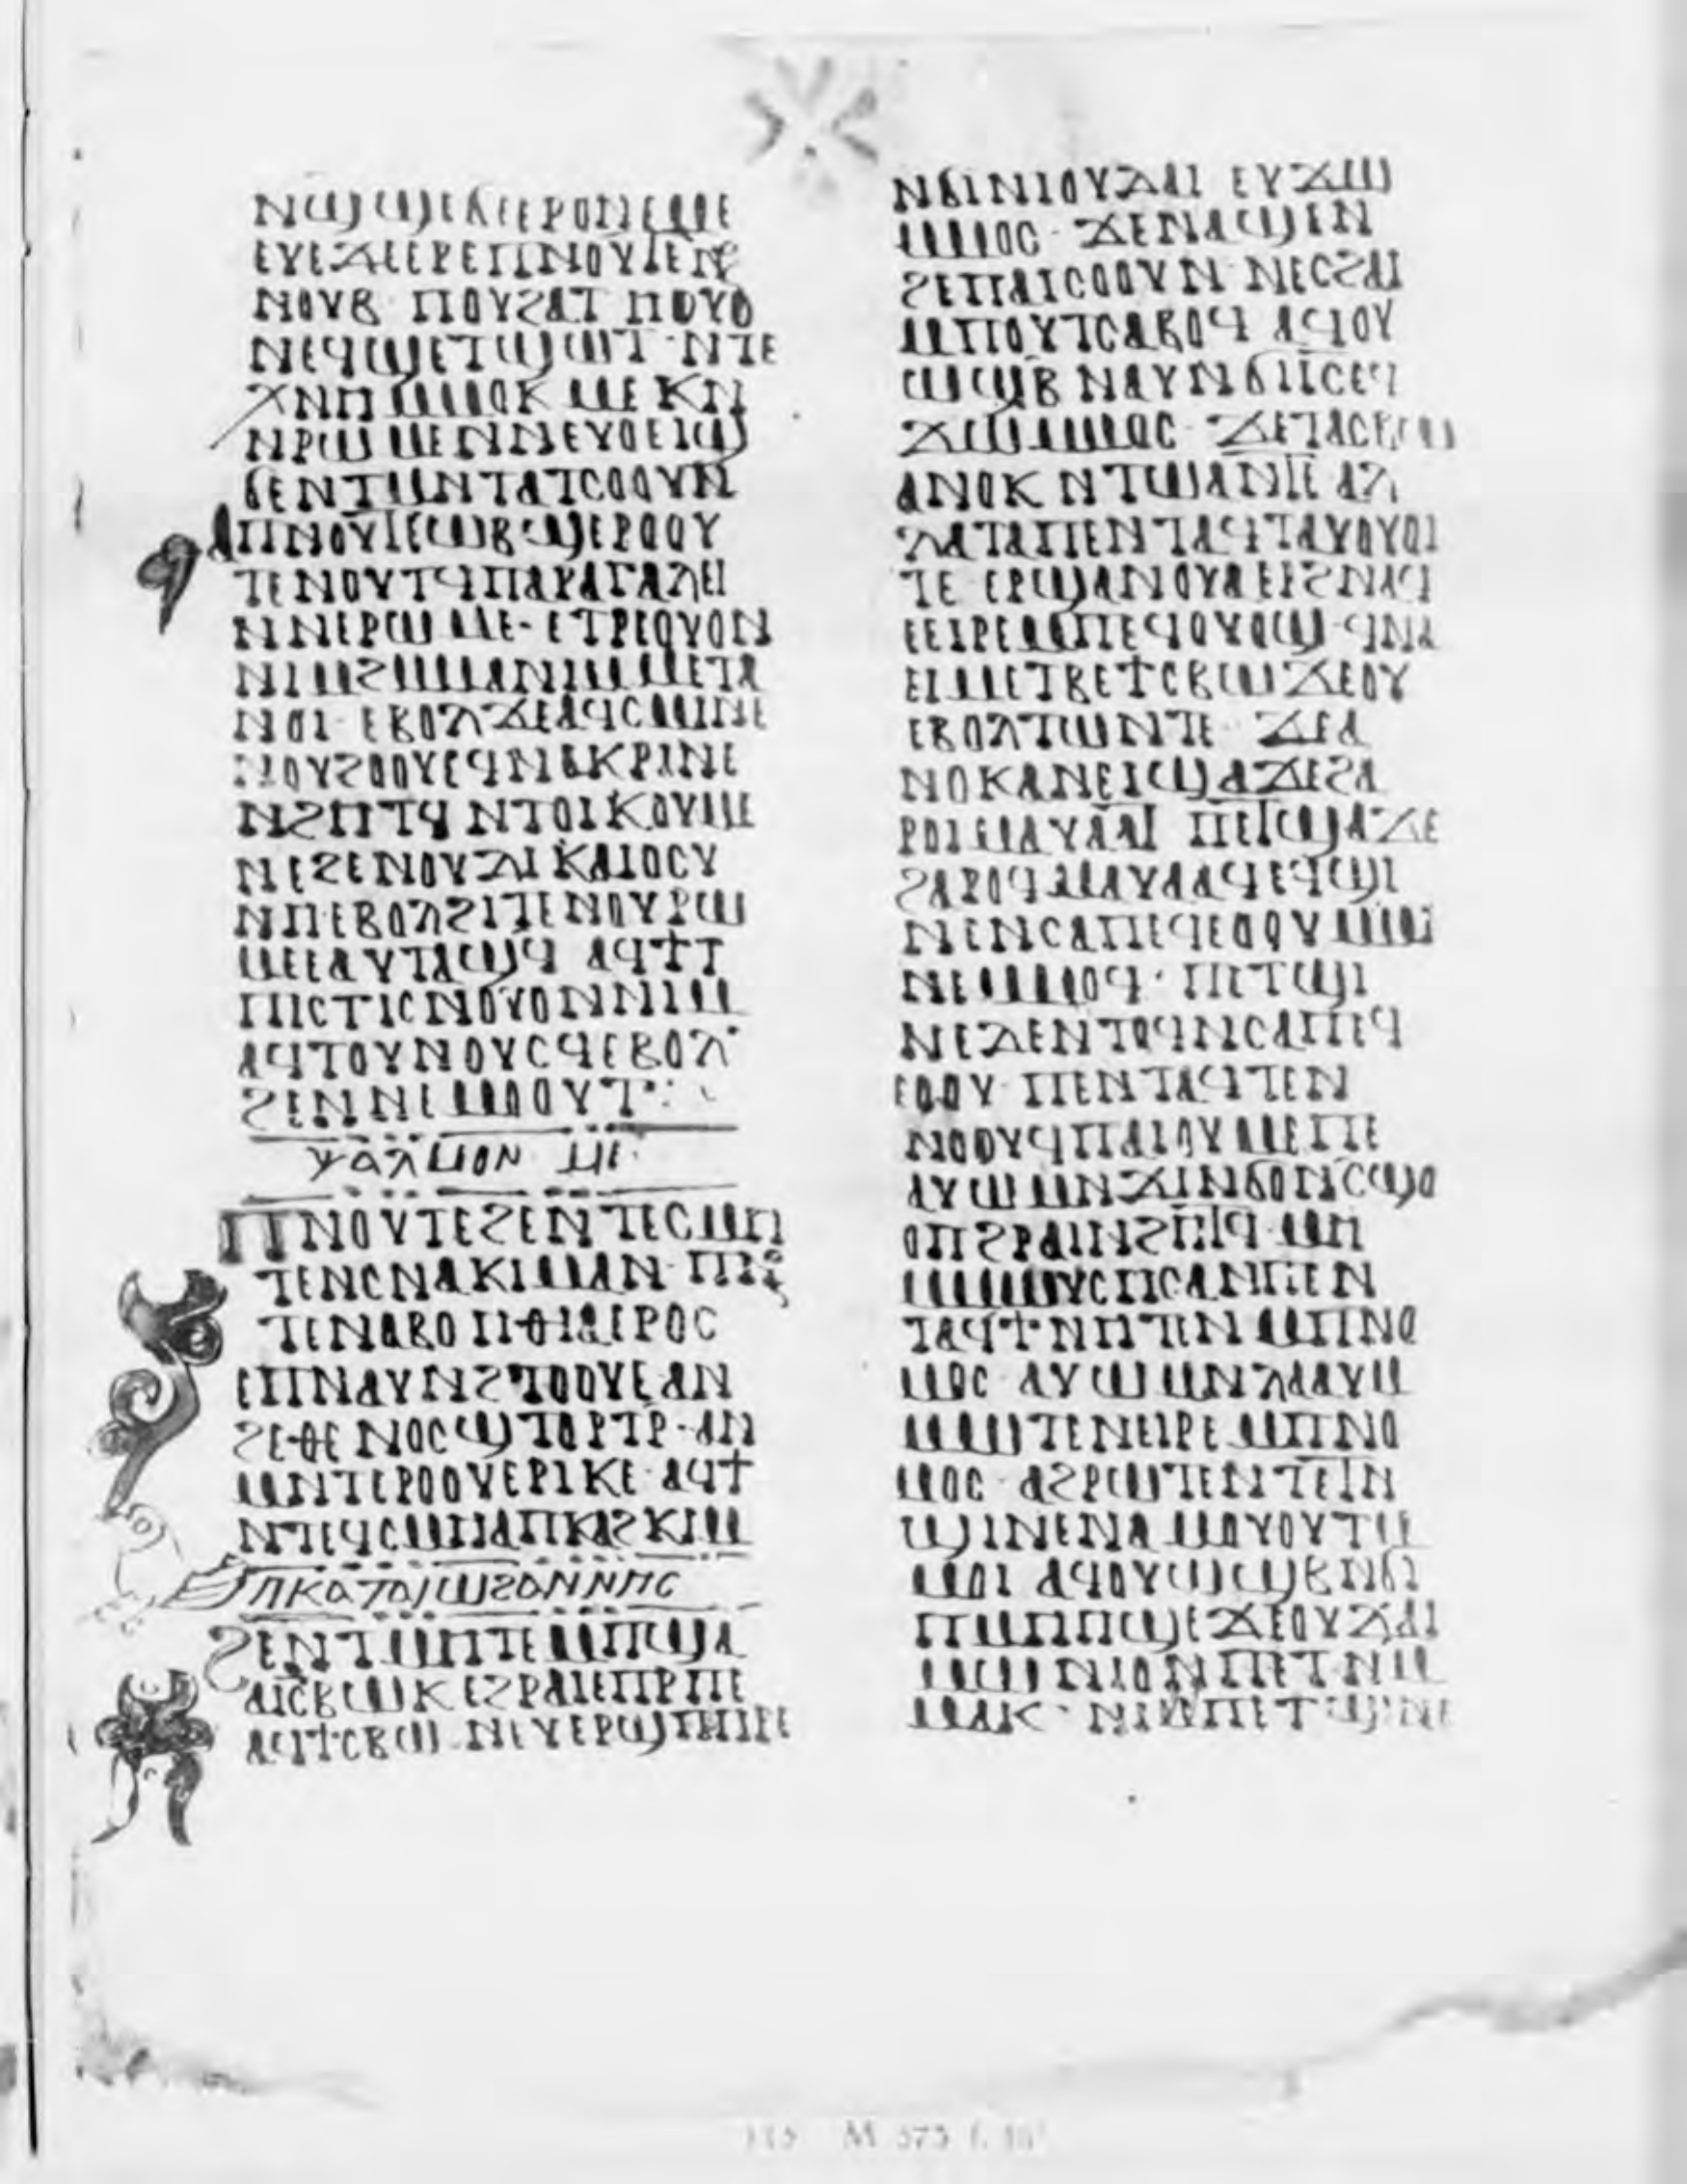 ⲛϣϣⲉⲁⲉⲉⲣⲟⲛⲉⲙⲉ
ⲉⲩⲉϫⲉⲉⲣⲉⲡⲛⲟⲩⲧⲉⲛⲉ
ⲛⲟⲩⲃ ⲡⲟⲩϩⲁⲧ ⲡⲟⲩⲱ
ⲛⲉϥϣⲉⲧϣⲱⲧ ⲛⲧⲉ
ⲭⲛⲏ ⲙⲙⲟⲕⲙⲉⲕⲛ
ⲛⲣⲱⲙⲉⲛⲛⲉⲩⲟⲉⲓϣ
ϭⲉⲛⲧⲙⲛⲧⲁⲧⲥⲟⲟⲩⲛ
ⲁⲡⲛⲟⲩⲧⲉⲱⲃϣⲉⲣⲟⲟⲩ
ⲧⲉⲛⲟⲩⲧϥⲡⲁⲣⲁⲅⲁⲗⲉⲓ
ⲛⲛⲉⲣⲱⲙⲉ ⲉⲧⲣⲉⲟⲩⲟⲛ
ⲛⲓⲙϩⲙⲙⲁⲛⲓⲙⲙⲉⲧⲁ
ⲛⲟⲓ ⲉⲃⲟⲗϫⲉⲁϥⲥⲙⲓⲛⲉ
ⲛⲟⲩϩⲟⲟⲩⲉϥⲛⲉⲕⲣⲓⲛⲉ
ⲛϩⲏⲧϥ ⲛⲧⲟⲓⲕⲟⲩⲙⲉ
ⲛⲉϩⲉⲛⲟⲩⲇⲓⲕⲁⲓⲟⲥⲩ
ⲛⲏⲉⲃⲟⲗϩⲓⲧⲉⲛⲟⲩⲣⲱ
ⲙⲉⲉⲁⲩⲧⲁϣϥ ⲁϥϯⲧ
ⲡⲓⲥⲧⲓⲥⲛⲟⲩⲟⲛⲛⲓⲙ
ⲁϥⲧⲟⲩⲛⲟⲩⲥϥⲉⲃⲟⲗ
ϩⲉⲛⲛⲉⲧⲙⲟⲟⲩⲧ
ⲯⲁⲗⲙⲟⲛ ⲙⲉ
ⲡⲛⲟⲩⲧⲉϩⲉⲛⲧⲉⲥⲙⲏ
ⲧⲉⲛⲥⲛⲁⲕⲓⲙⲁⲛ ⲡⲛ
ⲧⲉⲛⲁⲃⲟⲏⲑⲓⲁⲉⲣⲟⲥ
ⲉⲡⲛⲁⲩⲛϩⲧⲟⲟⲩⲉⲁⲛ
ϩⲉⲑⲉⲛⲟⲥϣⲧⲟⲣⲧⲣ ⲁⲛ
ⲙⲛⲧⲉⲣⲟⲟⲩⲉⲣⲓⲕⲉ ⲁϥϯ
ⲛⲧⲉϥⲥⲙⲏⲁⲡⲕⲁϩⲕⲓⲙ
ⲡⲕⲁⲧⲁⲓⲱϩⲁⲛⲛⲏⲥ
ϩⲉⲛⲧⲙⲏⲧⲉⲙⲡϣⲁ
ⲁⲓⲥⲃⲱⲕⲉϩⲣⲁⲓⲉⲡⲣⲡⲉ
ⲁϥϯⲥⲃⲱ ⲛⲉⲩⲉⲣϣⲡⲏⲣⲉ
ⲛϭⲓⲛⲓⲟⲩⲇⲁⲓ ⲉⲩϫⲱ
ⲙⲙⲟⲥ ϫⲉⲛⲁϣⲉⲛ
ϩⲉⲡⲁⲓⲥⲟⲟⲩⲛ ⲛⲉⲥϩⲁⲓ
ⲙⲡⲟⲩⲧⲥⲁⲃⲟϥ ⲁϥⲟⲩ
ⲱϣⲃ ⲛⲁⲩⲛϭⲓⲓⲥⲉϥ
ϫⲱⲙⲙⲟⲥ ϫⲉⲧⲁⲥⲃⲱ
ⲁⲛⲟⲕ ⲛⲧⲱⲁⲛⲧⲉ ⲁⲗ
ⲗⲁⲧⲁⲡⲉⲛⲧⲁϥⲧⲁⲩⲟⲩⲟⲓ
ⲧⲉ ⲉⲣϣⲁⲛⲟⲩⲁⲉⲓϩⲛⲁϥ
ⲉⲉⲓⲣⲉⲙⲡⲉϥⲟⲩⲱϣ ϥⲛⲁ
ⲉⲓⲙⲉⲧⲃⲉϯⲥⲃⲱϫⲉⲟⲩ
ⲉⲃⲟⲗⲧⲱⲛⲧⲉ ϫⲉⲁ
ⲛⲟⲕⲁⲛⲉⲓϣⲁϫⲉϩⲁ
ⲣⲟⲓⲉⲙⲁⲩⲁⲁⲧ ⲡⲉⲧϣⲁϫⲉ
ϩⲁⲣⲟϥⲙⲁⲩⲁⲁϥⲉϥϣⲓ
ⲛⲉⲛⲥⲁⲡⲉϥⲉⲟⲟⲩⲙⲙⲓ
ⲛⲉⲙⲙⲟϥ ⲡⲉⲧϣⲓ
ⲛⲉⲇⲉⲛⲧⲟϥⲛⲥⲁⲡⲉϥ
ⲉⲟⲟⲩ ⲡⲉⲛⲧⲁϥⲧⲉⲛ
ⲛⲟⲟⲩϥⲡⲁⲓⲟⲩⲙⲉⲡⲉ
ⲁⲩⲱⲙⲛϫⲓⲛϭⲟⲛⲥϣⲟ
ⲟⲡϩⲣⲁⲓⲛϩⲏⲧϥ ⲙⲏ
ⲙⲙⲱⲩⲥⲏⲥⲁⲛⲡⲉⲛ
ⲧⲁϥϯⲛⲏⲧⲉⲛⲙⲡⲛⲟ
ⲙⲟⲥ ⲁⲩⲱⲙⲛⲗⲁⲁⲩⲙ
ⲙⲱⲧⲉⲛⲉⲓⲣⲉⲙⲡⲛⲟ
ⲙⲟⲥ ⲁϩⲣⲱⲧⲉⲛⲧⲉⲧⲛ
ϣⲓⲛⲉⲛⲁⲙⲟⲩⲟⲩⲧⲙ
ⲙⲟⲓ ⲁϥⲟⲩⲱϣⲃⲛϭⲓ
ⲡⲙⲏⲏϣⲉϫⲉⲟⲩϫⲁⲓ
ⲙⲱⲛⲓⲟⲛⲡⲉⲧⲛⲙ
ⲙⲁⲕ ⲛⲓⲙⲡⲉⲧϣⲓⲛⲉ